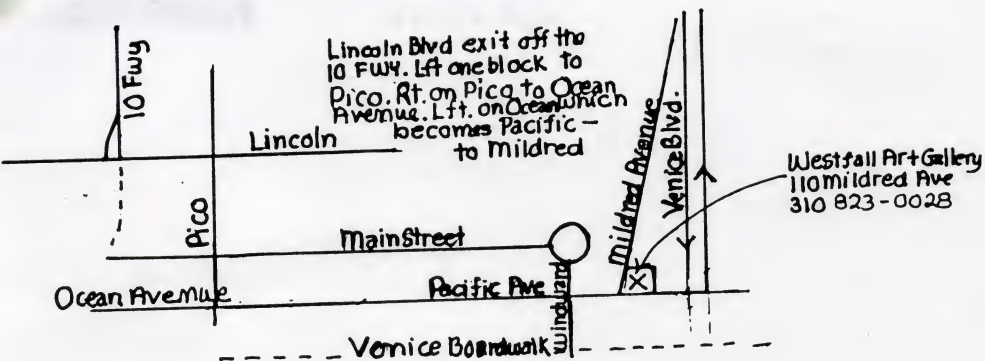 10 Fwy
Lincoln Blvd exit off the
10 FWY. Lft one block to
Pico. Rt. on Pico to Ocean
Avenue. Lft. on Ocean which
becomes Pacific -
to Mildred
Lincoln
Pico
Main Street
Ocean Avenue
Pacific Ave
Windward
Mildred Avenue
Venice Blvd.
X
Westfall Art Gallery
110 Mildred Ave
310 823-0028
Venice Boardwalk